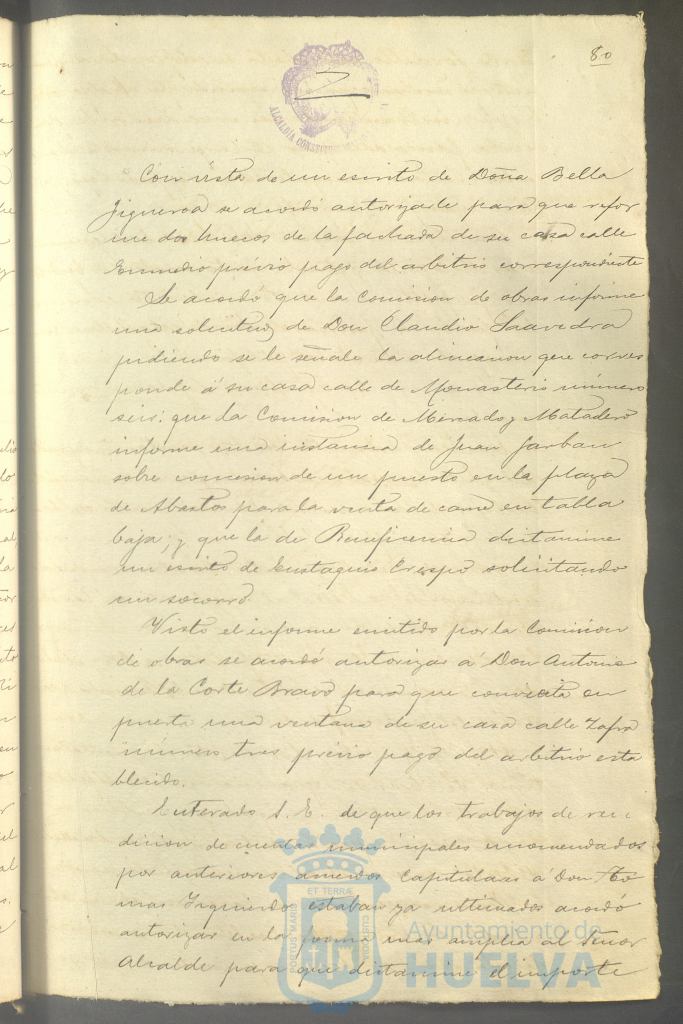 80
ALCALDIA CONSTITU
Con vista de un escrito de Doña Bella
Figueroa se acordó autorizarle para que refor
me dos huecos de la fachada de su casa calle
Enmedio prévio pago del arbitrio correspondiente
Se acordó que la Comision de obras informe
una solicitud de Don Claudio Saavedra
pidiendo se le señale la alineacion que corres
ponde á su casa calle de Monasterio número
seis: que la Comision de Mercado y Matadero
informe una instancia de Juan Garban
sobre concesion de un puesto en la plaza
de Abastos para la venta de carne en tabla
baja; y que la de Beneficencia dictamine
un escrito de Eustaquio Crespo solicitando
un socorro.
Visto el informe emitido por la Comision
de obras se acordó autorizar á Don Antonio
de la Corte Bravo para que convierta en
puerta una ventana de su casa calle Zafra
número tres prévio pago del arbitrio esta
blecido.
Enterado S. E. de que los trabajos de ren
dicion de cuentas municipales encomendados
por anteriores acuerdos Capitulares á Don To
mas Izquierdo estaban ya ultimados acordó
autorizar en la forma mas amplia al Señor
Alcalde para que dictamine el importe
ET TERRÆ
PORTUS MARIS
CUSTODIA
Ayuntamiento de
HUELVA